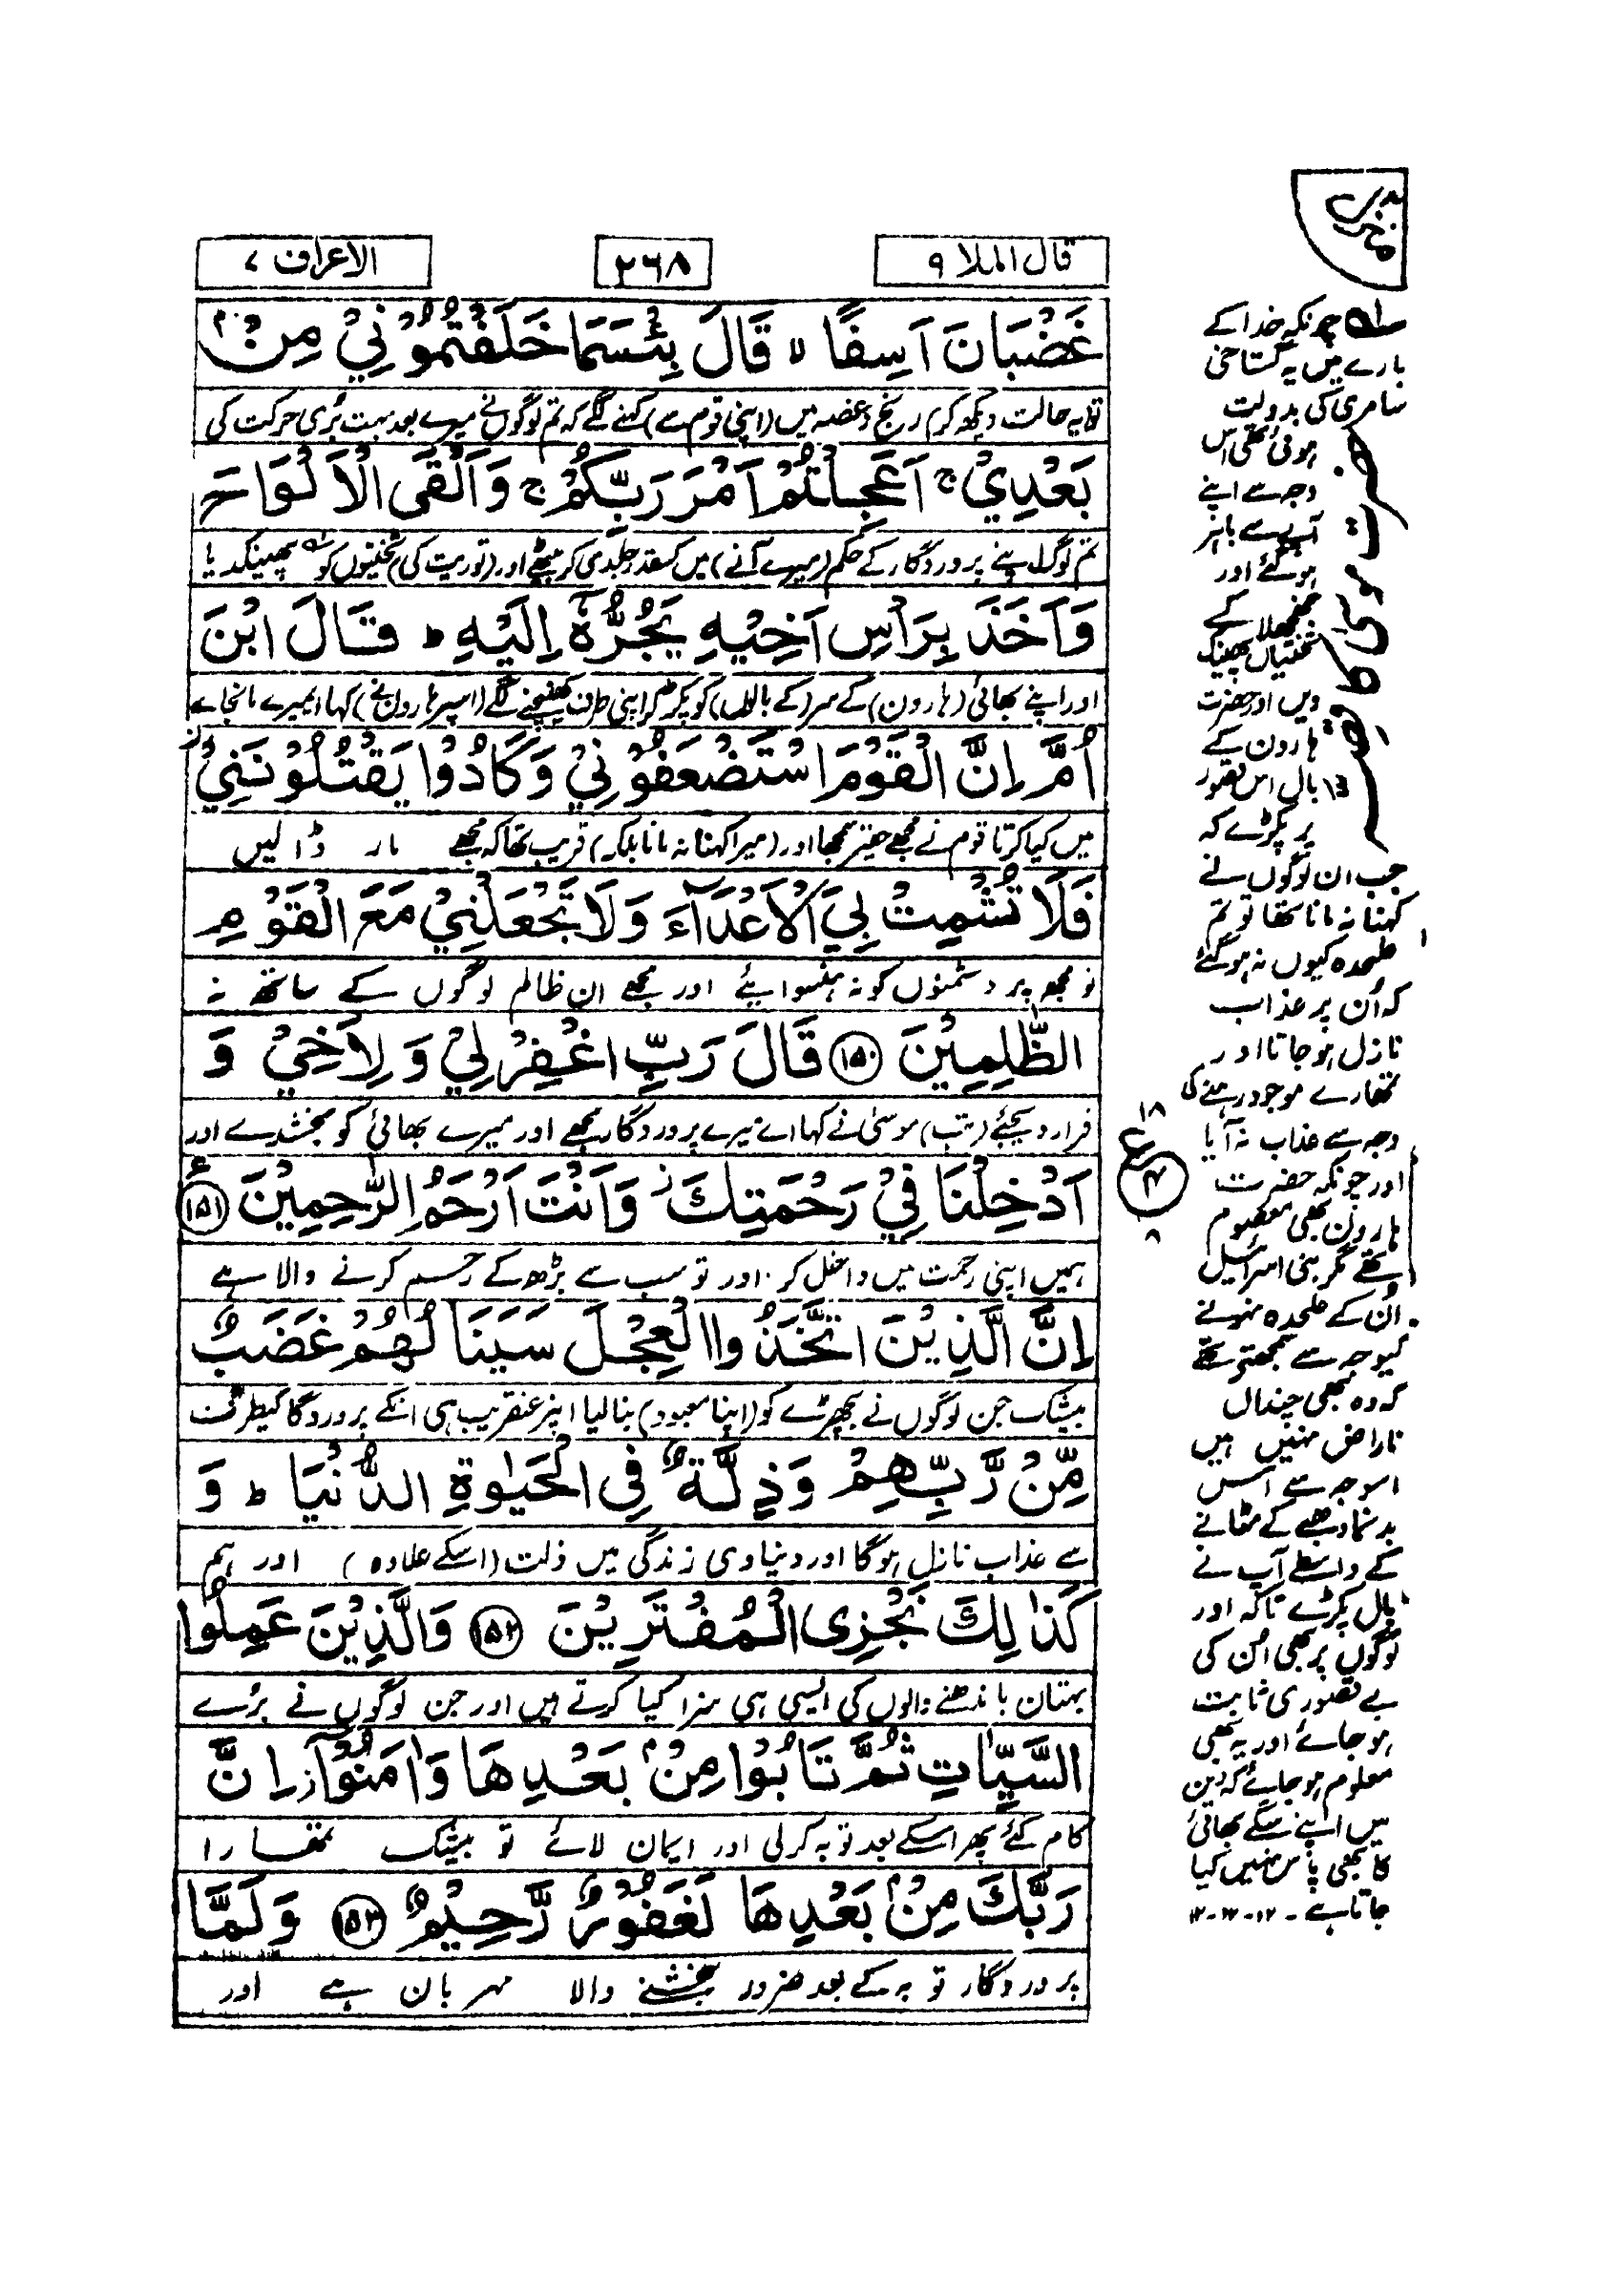 قال الملا ۹
۲۶۸
الاعراف ۷
غَضْبَانَ اَسِفًا ۙ قَالَ بِئْسَمَا خَلَفْتُمُوْنِيْ مِنْۢ
تو یہ حالت دیکھ کر) رنج و غصہ میں (اپنی قوم سے) کہنے لگے کہ تم لوگوں نے میرے بعد بہت بُری حرکت کی
بَعْدِيْ ۚ اَعَجِلْتُمْ اَمْرَ رَبِّكُمْ ۚ وَاَلْقَى الْاَلْوَاحَ
تم لوگ اپنے پروردگار کے حکم (میرے آنے) میں کسقدر جلدی کر بیٹھے اور (توریت کی) تختیوں کو پھینکدیا
وَاَخَذَ بِرَاْسِ اَخِيْهِ يَجُرُّهٗٓ اِلَيْهِ ؕ قَالَ ابْنَ
اور اپنے بھائی (ہارون) کے سر (کے بالوں) کو پکڑ کر اپنی طرف کھینچنے لگے (اسپر ہارون نے) کہا اے میرے مانجائے
اُمَّ اِنَّ الْقَوْمَ اسْتَضْعَفُوْنِيْ وَكَادُوْا يَقْتُلُوْنَنِيْ ۖ
میں کیا کرتا قوم نے مجھے حقیر سمجھا اور (میرا کہنا نہ مانا بلکہ) قریب تھا کہ مجھے مار ڈالیں
فَلَا تُشْمِتْ بِيَ الْاَعْدَآءَ وَلَا تَجْعَلْنِيْ مَعَ الْقَوْمِ
تو مجھ پر دشمنوں کو نہ ہنسوایئے اور مجھے ان ظالم لوگوں کے ساتھ نہ
الظّٰلِمِيْنَ ۱۵۰ قَالَ رَبِّ اغْفِرْ لِيْ وَ لِاَخِيْ وَ
قرار دیجئے (تب) موسیٰ نے کہا اے میرے پروردگار مجھے اور میرے بھائی کو بخشدے اور
اَدْخِلْنَا فِيْ رَحْمَتِكَ ۖ وَاَنْتَ اَرْحَمُ الرّٰحِمِيْنَ ۱۵۱
ہمیں اپنی رحمت میں داخل کر ۔ اور تو سب سے بڑھ کے رحم کرنے والا ہے
اِنَّ الَّذِيْنَ اتَّخَذُوا الْعِجْلَ سَيَنَالُهُمْ غَضَبٌ
بیشک جن لوگوں نے بچھڑے کو (اپنا معبود) بنا لیا اپنر عنقریب ہی انکے پروردگار کیطرف
مِّنْ رَّبِّهِمْ وَذِلَّةٌ فِي الْحَيٰوةِ الدُّنْيَا ؕ وَ
سے عذاب نازل ہوگا اور دنیاوی زندگی میں ذلت (اسکے علاوہ) اور ہم
كَذٰلِكَ نَجْزِي الْمُفْتَرِيْنَ ۱۵۲ وَالَّذِيْنَ عَمِلُوا
بہتان باندھنے والوں کی ایسی ہی سزا کیا کرتے ہیں اور جن لوگوں نے بُرے
السَّيِّاٰتِ ثُمَّ تَابُوْا مِنْۢ بَعْدِهَا وَاٰمَنُوْٓا ۡ اِنَّ
کام کئے پھر اسکے بعد توبہ کرلی اور ایمان لائے تو بیشک تمھارا
رَبَّكَ مِنْۢ بَعْدِهَا لَغَفُوْرٌ رَّحِيْمٌ ۱۵۳ وَلَمَّا
پروردگار توبہ کے بعد ضرور بخشنے والا مہربان ہے اور
چونکہ خدا کے
بارے میں یہ گستاخی
سامری کی بدولت
ہوئی تھی اس
وجہ سے اپنے
آپے سے باہر
ہو گئے اور
جھنجھلا کے
تختیاں پھینک
دیں اور حضرت
ہارون کے
بال اس تصور
پر پکڑے کہ
جب ان لوگوں نے
کہنا نہ مانا تھا تو تم
علحدہ کیوں نہ ہو گئے
کہ اُن پر عذاب
نازل ہو جاتا اور
تمھارے موجود رہنے کی
وجہ سے عذاب نہ آیا
اور چونکہ حضرت
ہارون بھی معصوم
تھے مگر بنی اسرائیل
اُن کے علحدہ نہونے
کیوجہ سے سمجھتے تھے
کہ وہ بھی چنداں
ناراض نہیں ہیں
اسوجہ سے اس
بدنما دھبے کے مٹانے
کے واسطے آپ نے
بال پکڑے تاکہ اور
لوگوں پر بھی اُن کی
بے قصوری ثابت
ہو جائے اور یہ بھی
معلوم ہو جائے کہ دین
میں اپنے سگے بھائی
کا بھی پاس نہیں کیا
جاتا ہے ۔
حضرت موسیٰ کا قصہ
۱۸
ع
۸